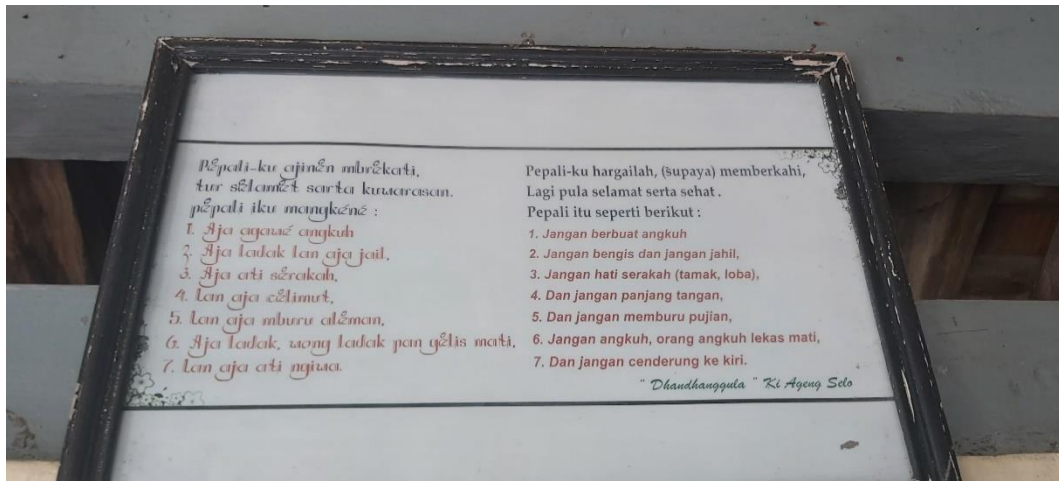 Pĕpali-ku ajinĕn mbrĕkati,
tur sĕlamĕt sarta kuwarasan.
pĕpali iku mangkéné :
1. Aja agawé angkuh
2. Aja ladak lan aja jail,
3. Aja ati sĕrakah,
4. Lan aja cĕlimut,
5. Lan aja mburu alĕman,
6. Aja ladak, wong ladak pan gĕlis mati,
7. Lan aja ati ngiwa.
Pepali-ku hargailah, (supaya) memberkahi,
Lagi pula selamat serta sehat .
Pepali itu seperti berikut :
1. Jangan berbuat angkuh
2. Jangan bengis dan jangan jahil,
3. Jangan hati serakah (tamak, loba),
4. Dan jangan panjang tangan,
5. Dan jangan memburu pujian,
6. Jangan angkuh, orang angkuh lekas mati,
7. Dan jangan cenderung ke kiri.
" Dhandhanggula " Ki Ageng Selo